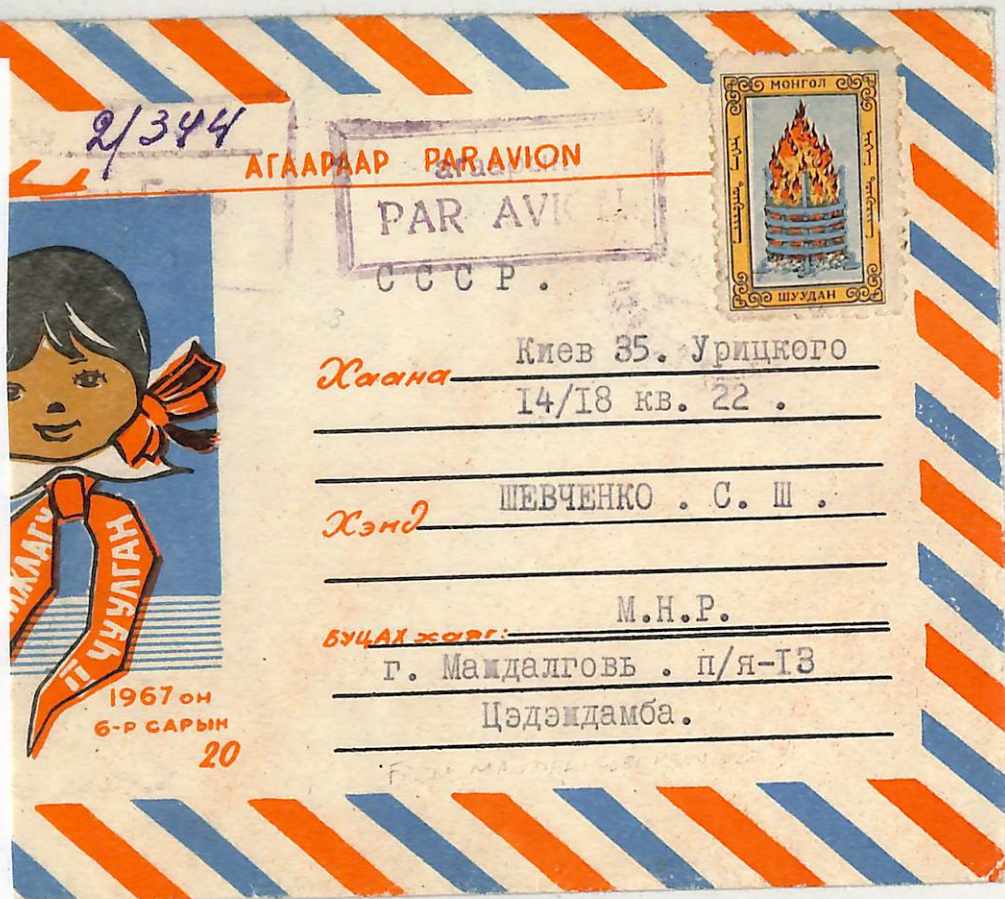 2/344
АГААРААР PAR AVION
агаарын
PAR AVION
МОНГОЛ
ШУУДАН
СССР.
Хаана Киев 35. Урицкого
14/18 кв. 22 .
Хэнд ШЕВЧЕНКО . С. Ш .
БУЦАХ хаяг: М.Н.Р.
г. Маждалговь . п/я-13
Цэдэждамба.
II ЧУУЛГАН
1967 он
6-р САРЫН
20